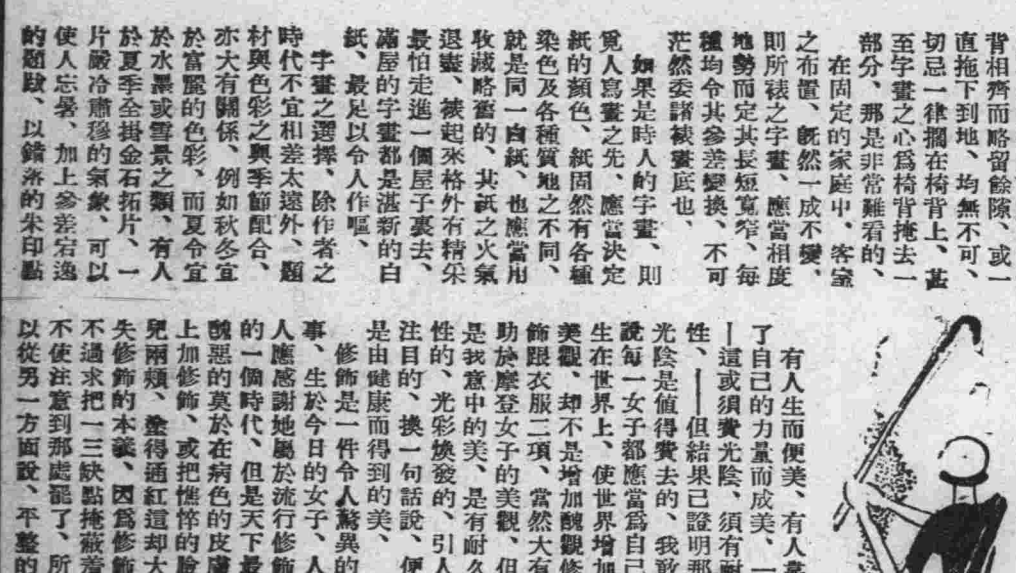 背相齊而略留餘隙、或一
直拖下到地、均無不可、
切忌一律擱在椅背上、甚
至字畫之心爲椅背掩去一
部分、那是非常難看的、
在固定的家庭中、客室
之布置、旣然一成不變、
則所裱之字畫、應當相度
地勢而定其長短寬窄、每
種均令其參差變換、不可
茫然委諸裱畫底也、
如果是時人的字畫、則
覓人寫畫之先、應當決定
紙的顏色、紙固然有各種
染色及各種質地之不同、
就是同一白紙、也應當用
收藏略舊的、其紙之火氣
退盡、裱起來格外有精采
最怕走進一個屋子裏去、
滿屋的字畫都是湛新的白
紙、最足以令人作嘔、
字畫之選擇、除作者之
時代不宜相差太遠外、題
材與色彩之與季節配合、
亦大有關係、例如秋冬宜
於富麗的色彩、而夏令宜
於水墨或雪景之類、有人
於夏季全掛金石拓片、一
片嚴冷肅穆的氣象、可以
使人忘暑、加上參差宕逸
的題跋、以錯落的朱印點
有人生而便美、有人靠
了自己的力量而成美、一
—這或須費光陰、須有耐
性、——但結果已證明那
光陰是値得費去的、我敢
說每一女子都應當爲自己
生在世界上、使世界增加
美觀、却不是增加醜觀修
飾跟衣服二項、當然大有
助於摩登女子的美觀、但
是我意中的美、是有耐久
性的、光彩煥發的、引人
注目的、換一句話說、便
是由健康而得到的美、
修飾是一件令人驚異的
事、生於今日的女子、人
人應感謝她屬於流行修飾
的一個時代、但是天下最
醜惡的莫於在病色的皮膚
上加修飾、或把憔悴的臉
兒兩頰、塗得通紅這却大
失修飾的本義、因爲修飾
不過求把一三缺點掩蔽着
不使注意到那處罷了、所
以從男一方面說、平整的